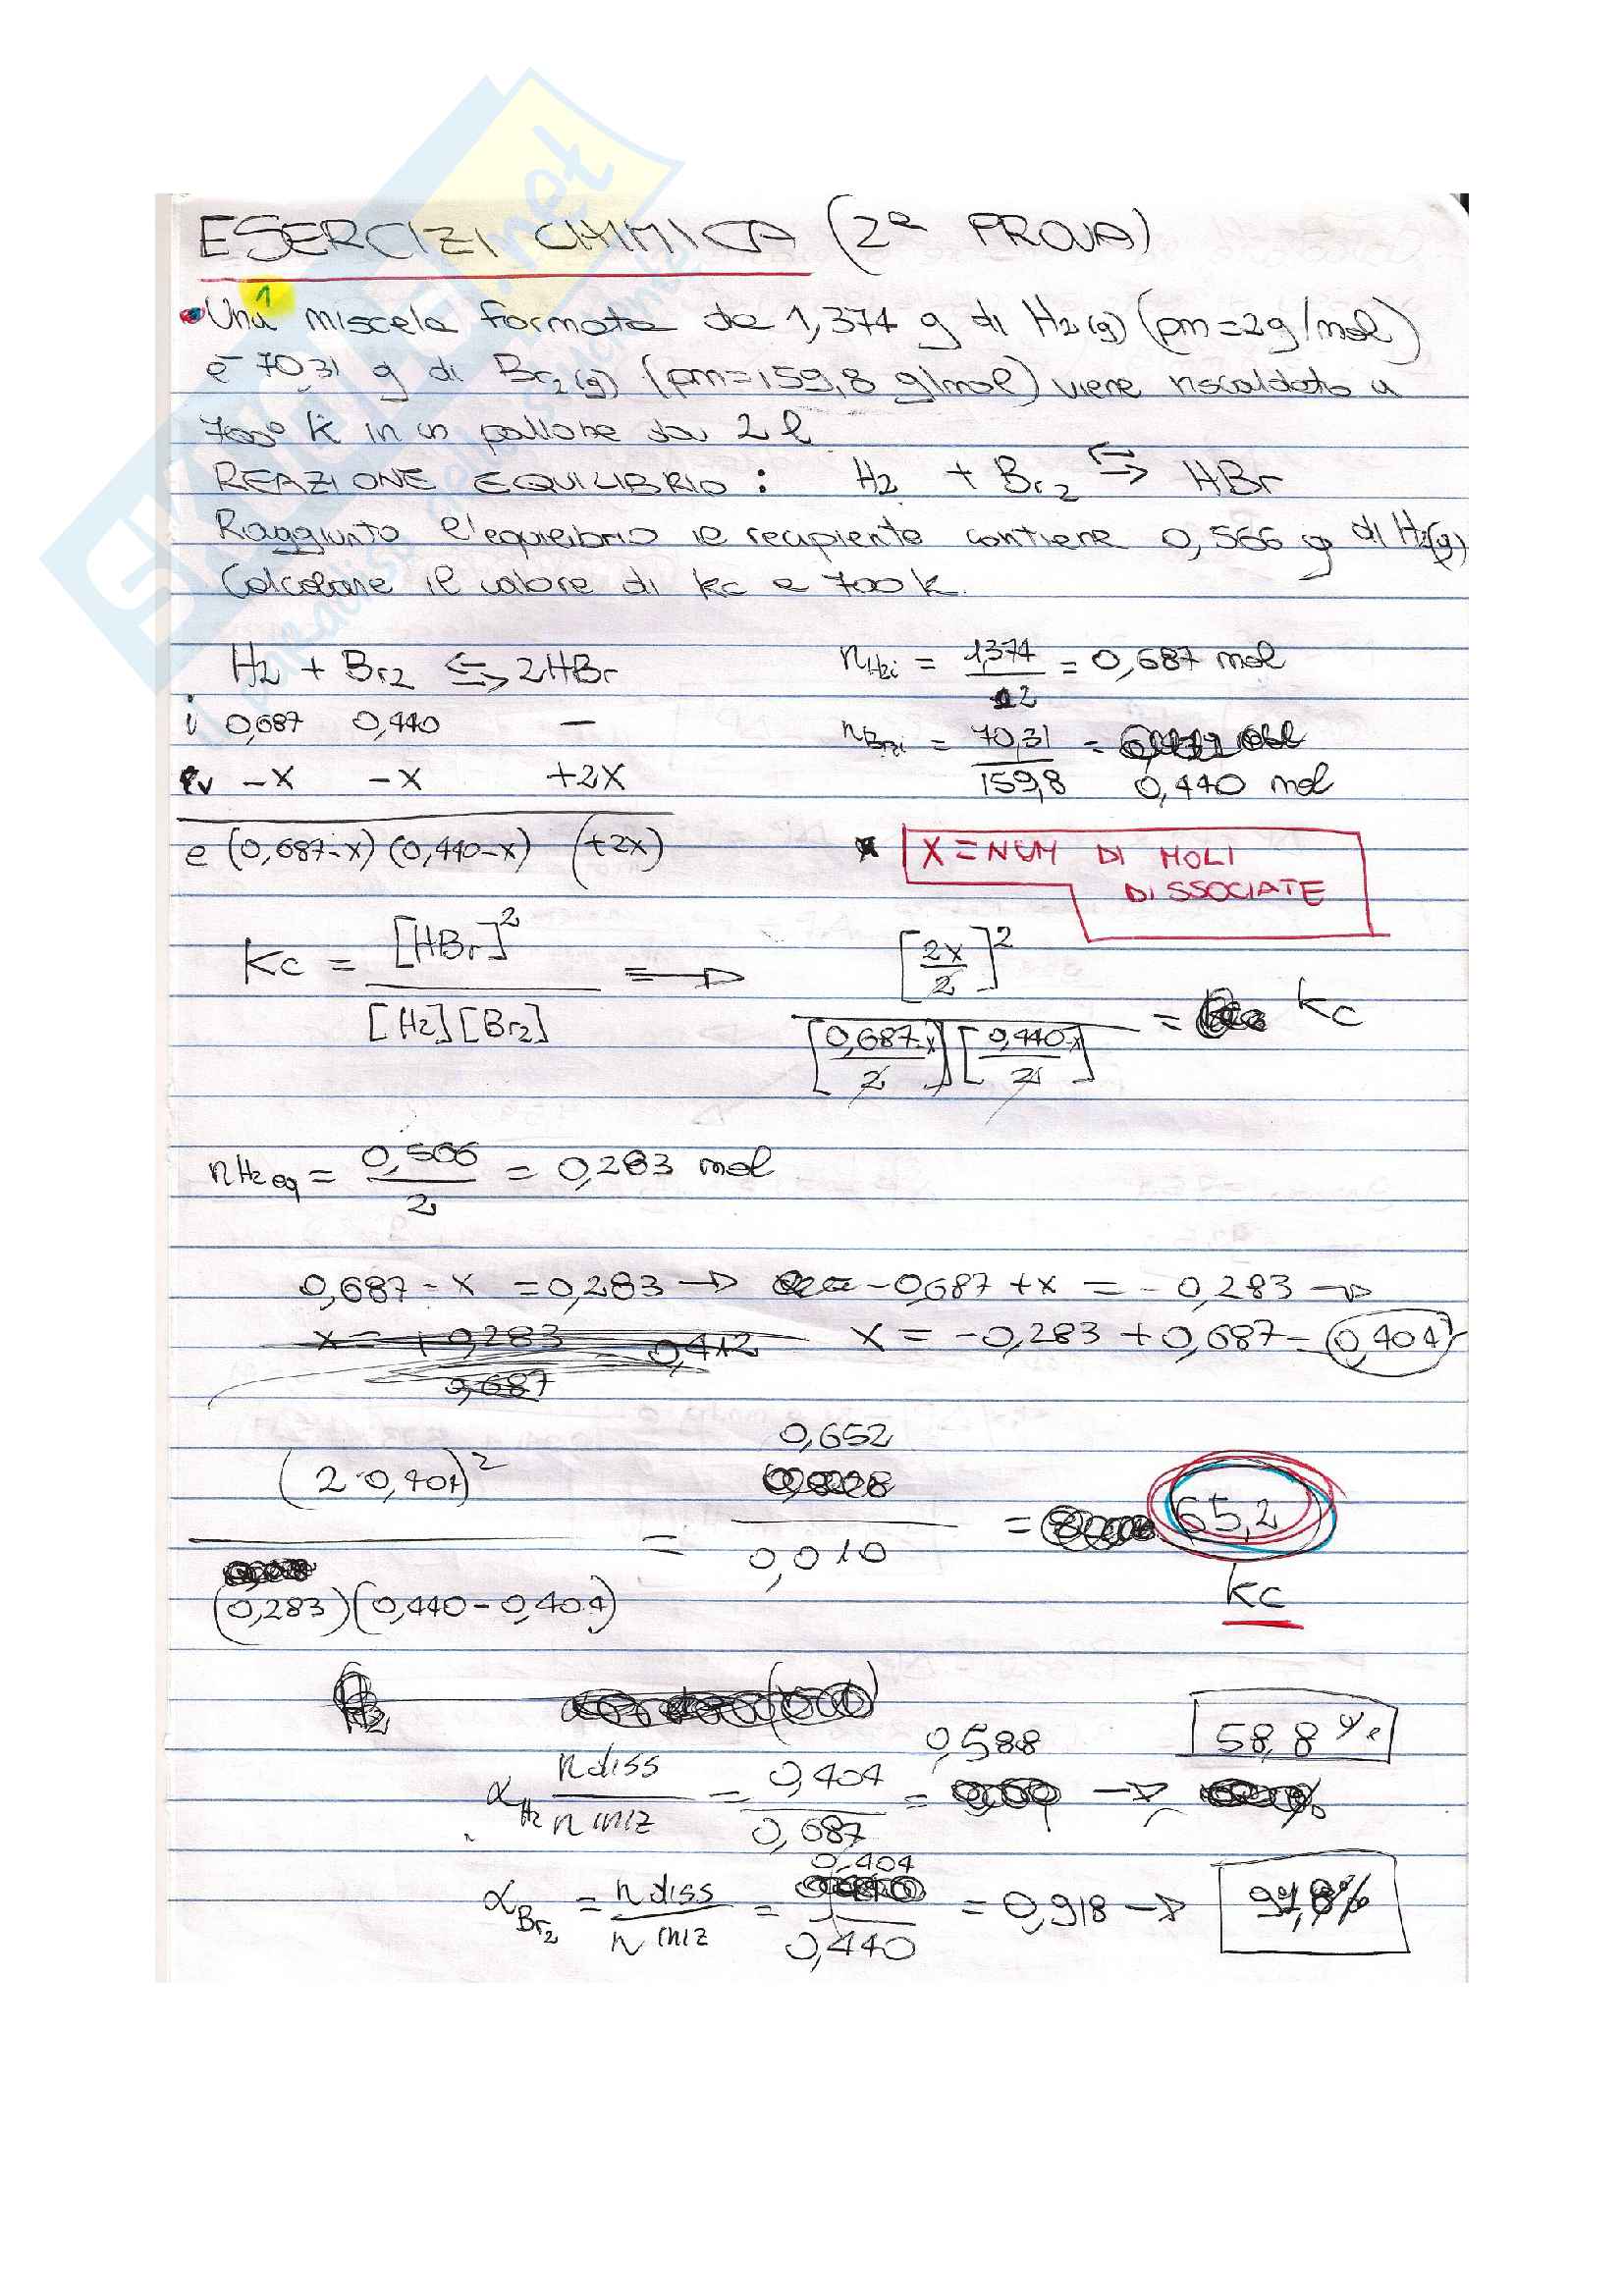 ESERCIZI CHIMICA (2ª PROVA)
1
• Una miscela formata da 1,374 g di H2(g) (pm=2g/mol)
e 70,31 g di Br2(g) (pm=159,8 g/mol) viene riscaldata a
700° K in un pallone da 2 l
REAZIONE EQUILIBRIO : H2 + Br2 ⇆ HBr
Raggiunto l'equilibrio il recipiente contiene 0,566 g di H2(g)
Calcolare il valore di kc a 700 k.
H2 + Br2 ⇆ 2HBr
nH2i = 1,374 / 2 = 0,687 mol
i 0,687 0,440 –
nBr2i = 70,31 / 159,8 = 0,440 mol
v -x -x +2x
e (0,687-x) (0,440-x) (+2x)
X = NUM DI MOLI
DISSOCIATE
Kc = [HBr]² / [H2][Br2] ⇒ [2x/2]² / [0,687-x/2][0,440-x/2] = kc
nH2 eq = 0,566 / 2 = 0,283 mol
0,687 - x = 0,283 → -0,687 + x = -0,283 →
x = -0,283 + 0,687 = 0,404
(2·0,404)² / (0,283)(0,440-0,404) = 0,652 / 0,010 = 65,2
kc
α H2 n diss / n iniz = 0,404 / 0,687 = 0,588 → 58,8 %
α Br2 = n diss / n iniz = 0,404 / 0,440 = 0,918 → 91,8%